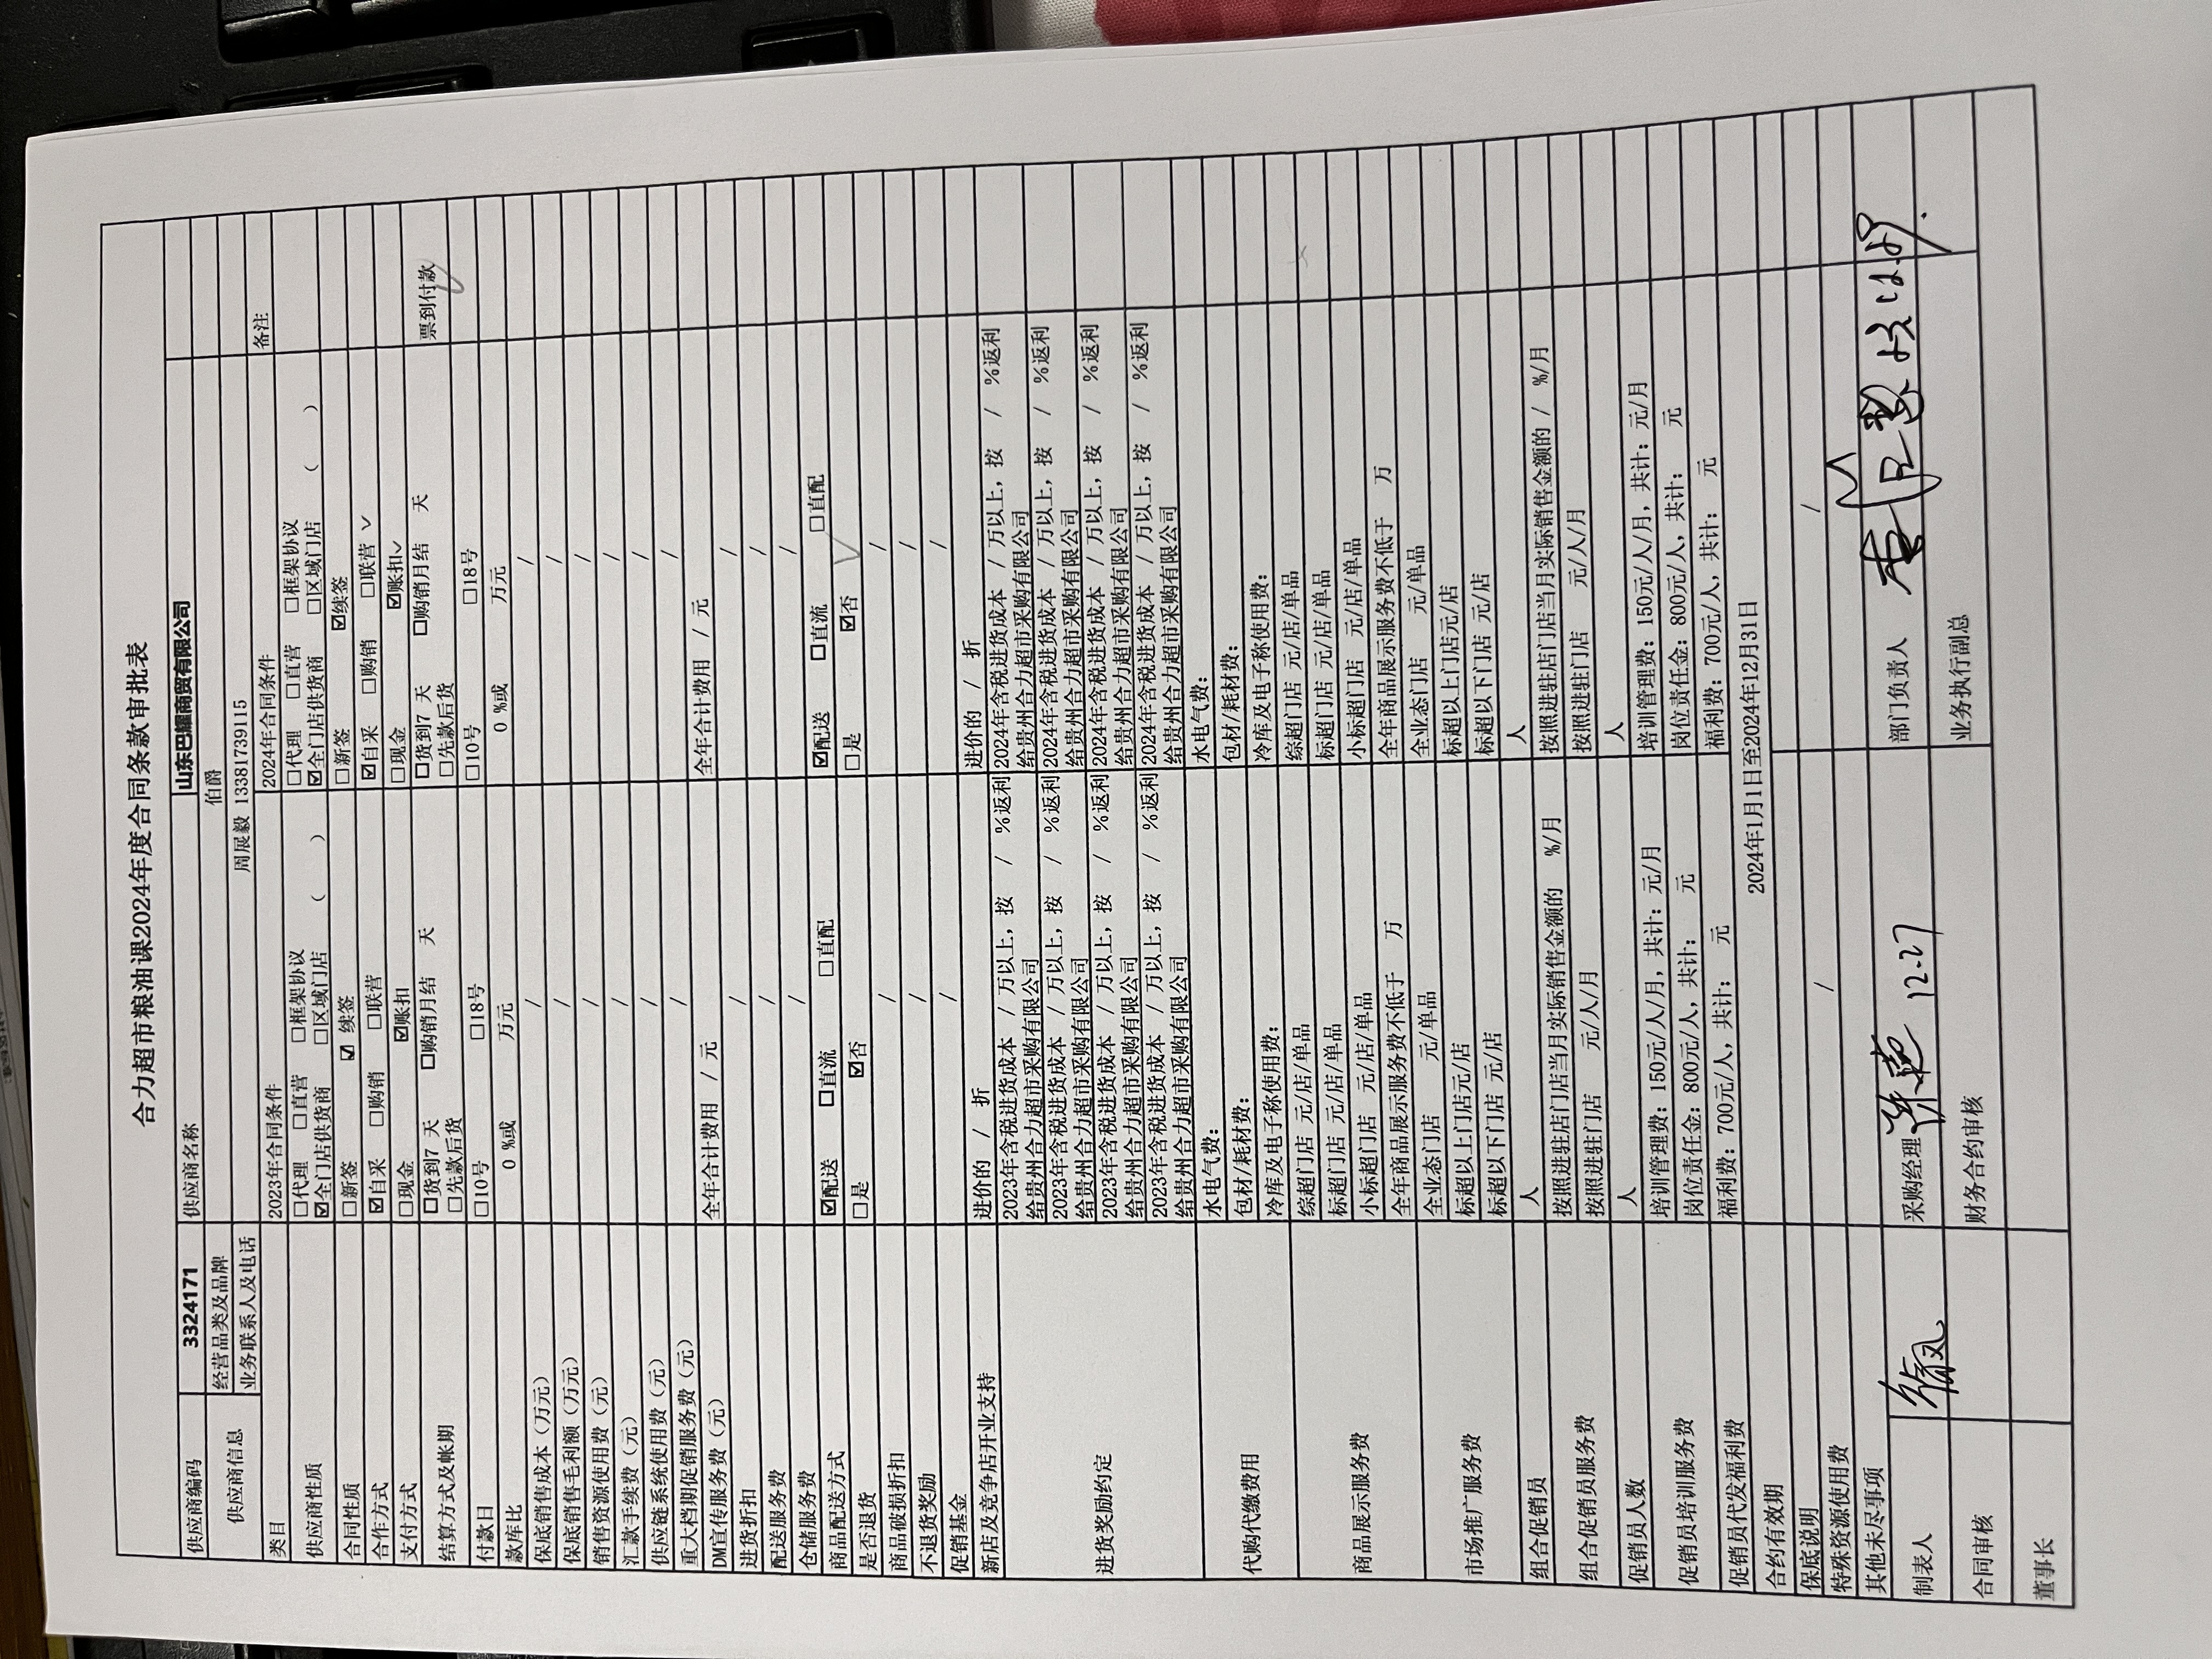 合力超市粮油课2024年度合同条款审批表
供应商编码 3324171 供应商名称 山东巴耀商贸有限公司
供应商信息 经营品类及品牌 伯爵
业务联系人及电话 周展毅 13381739115
类目 2023年合同条件 2024年合同条件 备注
供应商性质 □代理 □直营 □框架协议 □代理 □直营 □框架协议
☑全门店供货商 □区域门店 ( ) ☑全门店供货商 □区域门店 ( )
合同性质 □新签 ☑ 续签 □新签 ☑续签
合作方式 ☑自采 □购销 □联营 ☑自采 □购销 □联营 ✓
支付方式 □现金 ☑账扣 □现金 ☑账扣✓
结算方式及帐期 □货到7 天 □购销月结 天 □货到7 天 □购销月结 天 票到付款
□先款后货 □先款后货
付款日 □10号 □18号 □10号 □18号
款库比 0 %或 万元 0 %或 万元
保底销售成本（万元） / /
保底销售毛利额（万元） / /
销售资源使用费（元） / /
汇款手续费（元） / /
供应链系统使用费（元） / /
重大档期促销服务费（元） / /
DM宣传服务费（元） 全年合计费用 / 元 全年合计费用 / 元
进货折扣 / /
配送服务费 / /
仓储服务费 / /
商品配送方式 ☑配送 □直流 □直配 ☑配送 □直流 □直配
是否退货 □是 ☑否 □是 ☑否
商品破损折扣 / /
不退货奖励 / /
促销基金 / /
新店及竞争店开业支持 进价的 / 折 进价的 / 折
进货奖励约定 2023年含税进货成本 / 万以上，按 / %返利 2024年含税进货成本 / 万以上，按 / %返利
给贵州合力超市采购有限公司 给贵州合力超市采购有限公司
2023年含税进货成本 / 万以上，按 / %返利 2024年含税进货成本 / 万以上，按 / %返利
给贵州合力超市采购有限公司 给贵州合力超市采购有限公司
2023年含税进货成本 / 万以上，按 / %返利 2024年含税进货成本 / 万以上，按 / %返利
给贵州合力超市采购有限公司 给贵州合力超市采购有限公司
2023年含税进货成本 / 万以上，按 / %返利 2024年含税进货成本 / 万以上，按 / %返利
给贵州合力超市采购有限公司 给贵州合力超市采购有限公司
代购代缴费用 水电气费： 水电气费：
包材/耗材费： 包材/耗材费：
冷库及电子称使用费： 冷库及电子称使用费：
商品展示服务费 综超门店 元/店/单品 综超门店 元/店/单品
标超门店 元/店/单品 标超门店 元/店/单品
小标超门店 元/店/单品 小标超门店 元/店/单品
全年商品展示服务费不低于 万 全年商品展示服务费不低于 万
市场推广服务费 全业态门店 元/单品 全业态门店 元/单品
标超以上门店元/店 标超以上门店元/店
标超以下门店 元/店 标超以下门店 元/店
组合促销员 人 人
组合促销员服务费 按照进驻店门店当月实际销售金额的 %/月 按照进驻店门店当月实际销售金额的 / %/月
按照进驻门店 元/人/月 按照进驻门店 元/人/月
促销员人数 人 人
促销员培训服务费 培训管理费：150元/人/月，共计：元/月 培训管理费：150元/人/月，共计：元/月
岗位责任金：800元/人，共计： 元 岗位责任金：800元/人，共计： 元
促销员代发福利费 福利费：700元/人，共计： 元 福利费：700元/人，共计： 元
合约有效期 2024年1月1日至2024年12月31日
保底说明
特殊资源使用费 / /
其他未尽事项
制表人 采购经理 12.27 部门负责人
合同审核 财务合约审核 业务执行副总
董事长